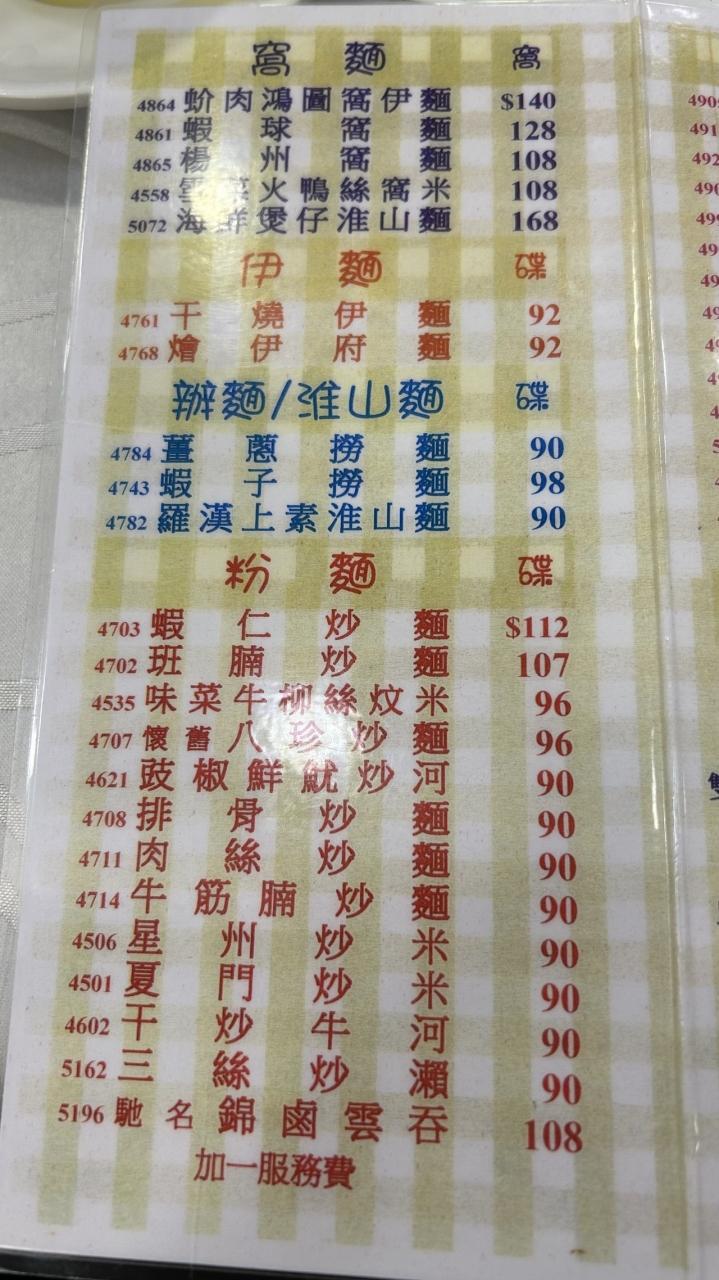 窩麵 窩
4864 蚧肉鴻圖窩伊麵 $140
4861 蝦球窩麵 128
4865 楊州窩麵 108
4558 雪菜火鴨絲窩米 108
5072 海鮮煲仔淮山麵 168
伊麵 碟
4761 干燒伊麵 92
4768 燴伊府麵 92
辦麵/淮山麵 碟
4784 薑蔥撈麵 90
4743 蝦子撈麵 98
4782 羅漢上素淮山麵 90
粉麵 碟
4703 蝦仁炒麵 $112
4702 班腩炒麵 107
4535 味菜牛柳絲炆米 96
4707 懷舊八珍炒麵 96
4621 豉椒鮮魷炒河 90
4708 排骨炒麵 90
4711 肉絲炒麵 90
4714 牛筋腩炒麵 90
4506 星州炒米 90
4501 夏門炒米 90
4602 干炒牛河 90
5162 三絲炒瀨 90
5196 馳名錦鹵雲吞 108
加一服務費